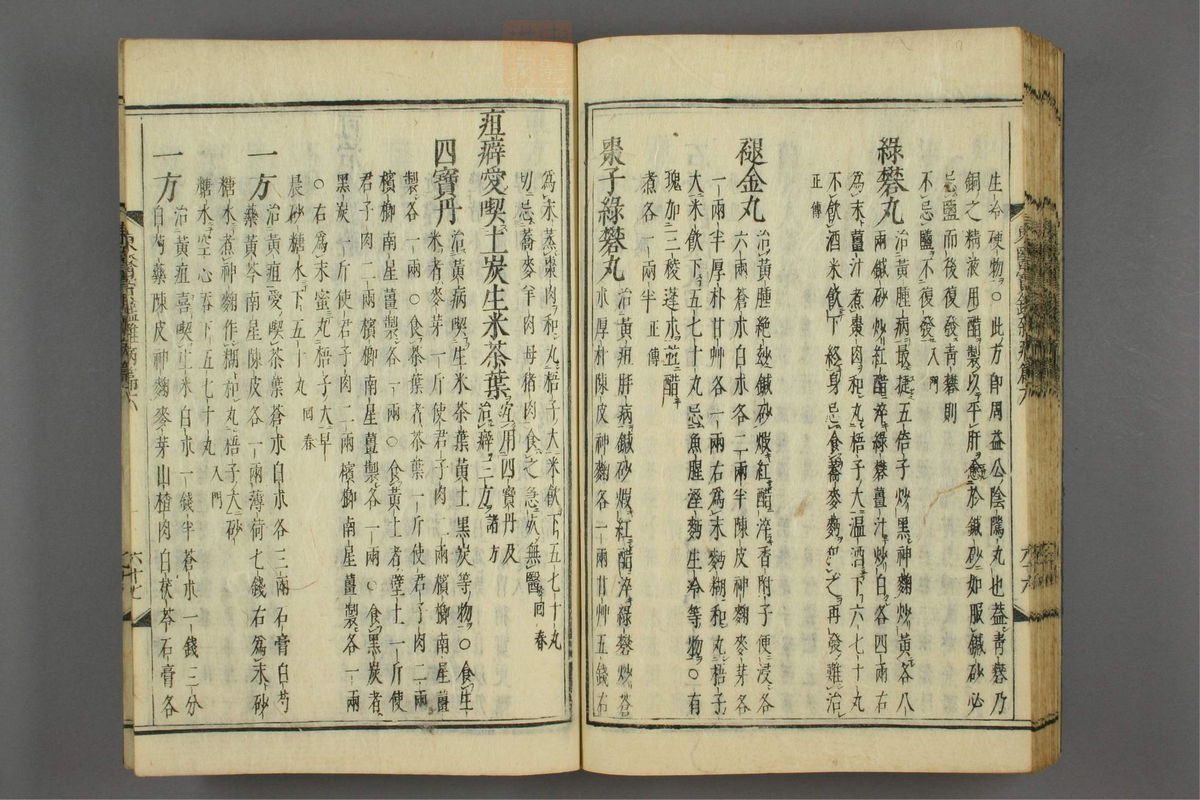 生冷硬物○此方卽周益公陰隲丸也葢靑礬乃
銅之精液用醋製以平肝愈於鍼砂如服鍼砂必
忌鹽而後復發靑礬則
不忌鹽不復發入門
綠礬丸治黃腫病最捷五倍子炒黑神麴炒黃各八
兩鍼砂炒紅醋淬綠礬薑汁炒白各四兩右
爲末薑汁煮棗肉和丸梧子大温酒下六七十丸
不飮酒米飮下終身忌食蕎麥麪犯之再發難治
正傳
褪金丸治黃腫絶玅鍼砂煅紅醋淬香附子便浸各
六兩蒼朮白朮各二兩半陳皮神麴麥芽各
一兩半厚朴甘艸各一兩右爲末麪糊和丸梧子
大米飮下五七十丸忌魚腥溼麪生冷等物○有
塊加三稜蓬朮並醋
煮各一兩半正傳
棗子綠礬丸治黃疸肝病鍼砂煅紅醋淬綠礬炒蒼
朮厚朴陳皮神麴各一兩甘艸五錢右
爲末蒸棗肉和丸梧子大米飮下五七十丸
切忌蕎麥羊肉母猪肉食之急於無醫回春
疸癖愛喫土炭生米茶葉宜用四寶丹及
治癖三方諸方
四寶丹治黃病喫生米茶葉黃土黑炭等物○食生
米者麥芽一斤使君子肉二兩檳榔南星薑
製各一兩○食茶葉者茶葉一斤使君子肉二兩
檳榔南星薑製各一兩○食黃土者壁土一斤使
君子肉二兩檳榔南星薑製各一兩○食黑炭者
黑炭一斤使君子肉二兩檳榔南星薑製各一兩
○右爲末蜜丸梧子大早
晨砂糖水下五十丸回春
一方治黃疸愛喫茶葉蒼朮白朮各三兩石膏白芍
藥黃芩南星陳皮各一兩薄荷七錢右爲末砂
糖水煮神麴作糊和丸梧子大砂
糖水空心呑下五七十丸入門
一方治黃疸喜喫生米白朮一錢半蒼朮一錢三分
白芍藥陳皮神麴麥芽山楂肉白茯苓石膏各